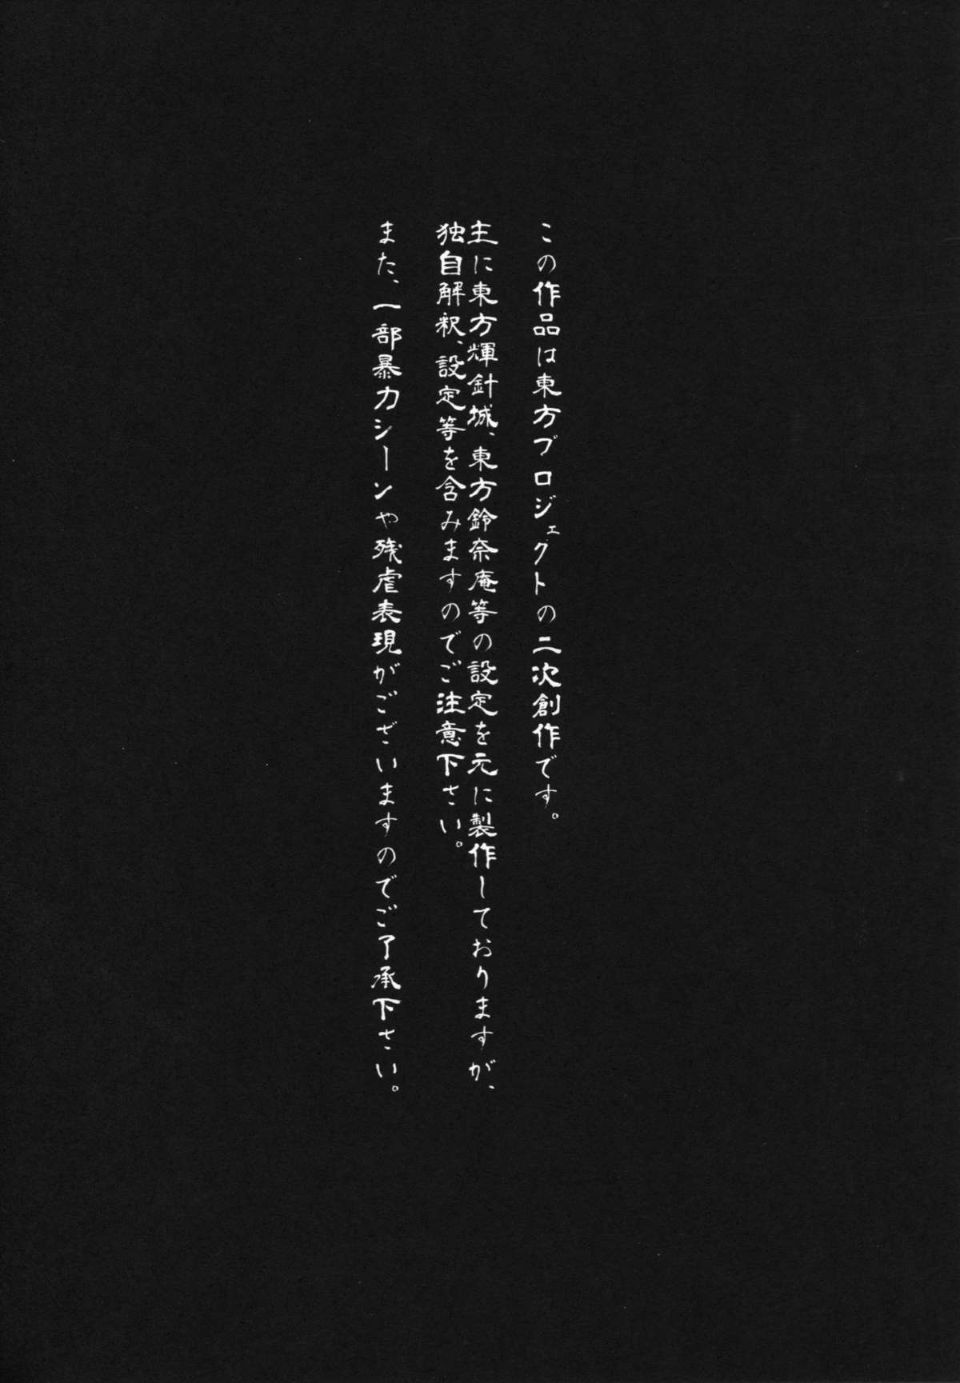 この作品は東方プロジェクトの二次創作です。
主に東方輝針城、東方鈴奈庵等の設定を元に製作しておりますが、
独自解釈、設定等を含みますのでご注意下さい。
また、一部暴力シーンや残虐表現がございますのでご了承下さい。